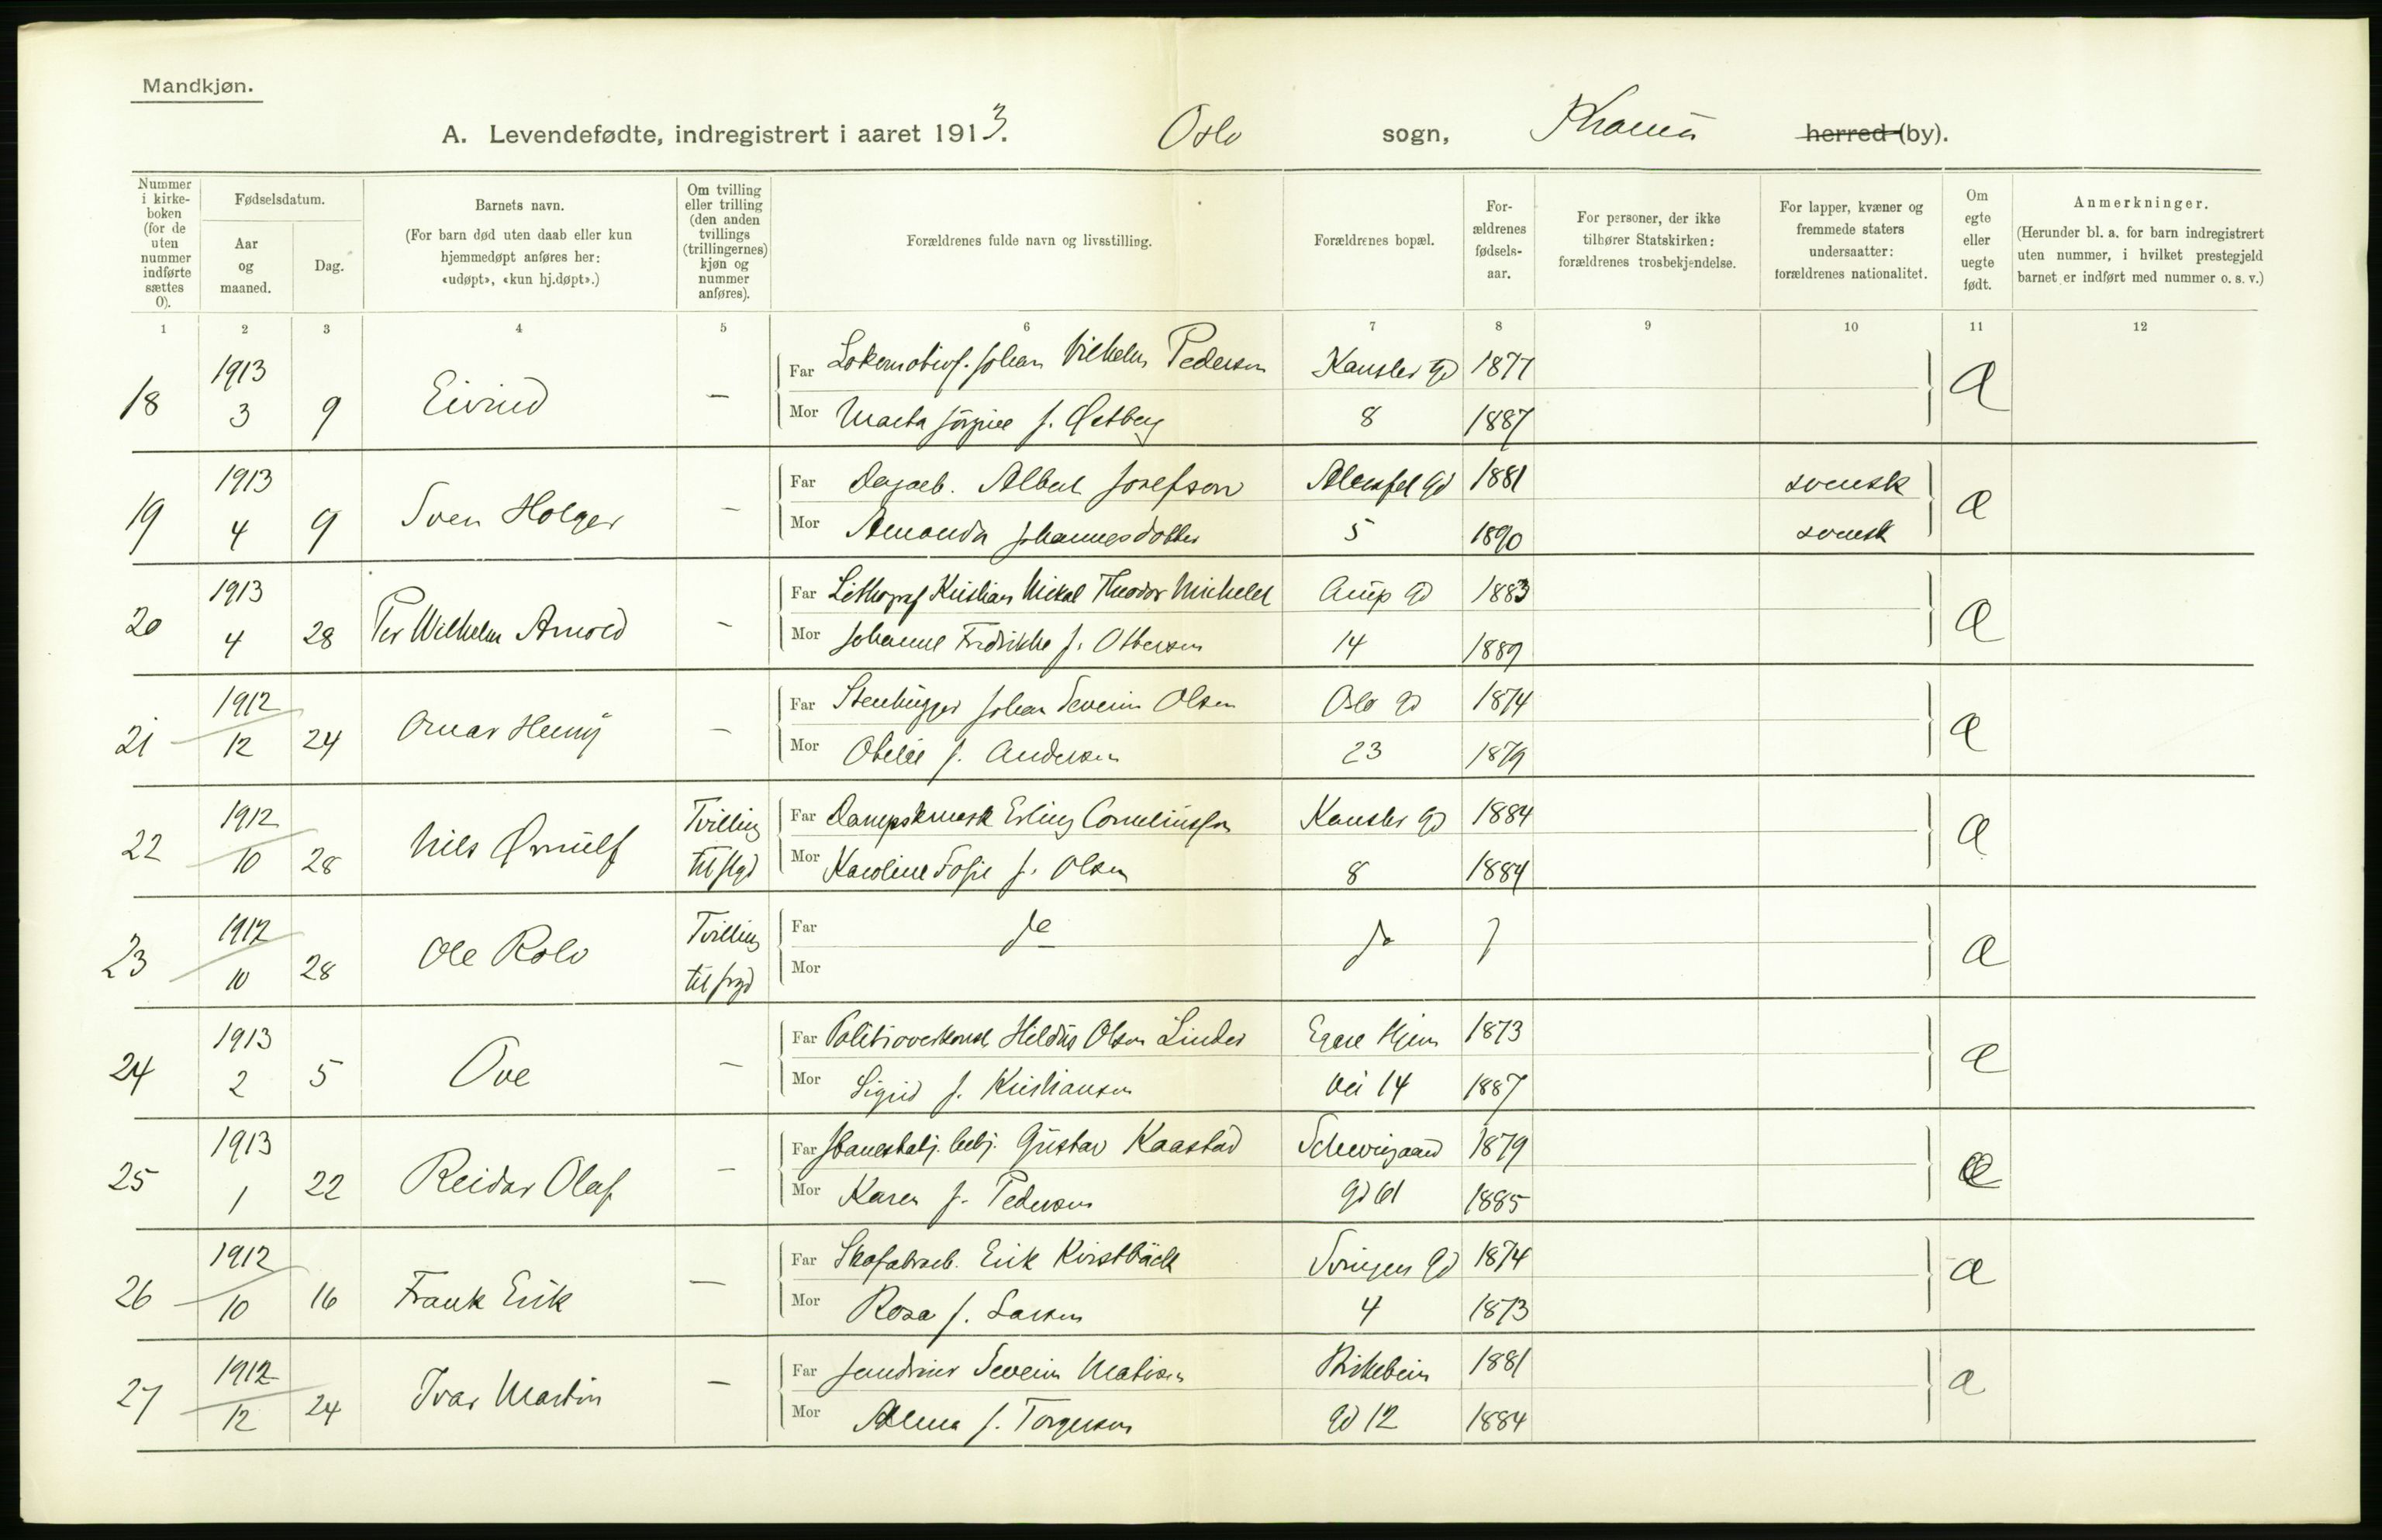 Mandkjøn.
A. Levendefødte, indregistrert i aaret 1913. Oslo sogn, herred (by).
Nummer i kirke-boken (for de uten nummer indførte sættes 0).
Fødselsdatum.
Aar og maaned.
Dag.
Barnets navn.
(For barn død uten daab eller kun hjemmedøpt anføres her: «udøpt», «kun hj.døpt».)
Om tvilling eller trilling (den anden tvillings (trillingernes) kjøn og nummer anføres).
Forældrenes fulde navn og livsstilling.
Forældrenes bopæl.
For-ældrenes fødsels-aar.
For personer, der ikke tilhører Statskirken: forældrenes trosbekjendelse.
For lapper, kvæner og fremmede staters undersaatter: forældrenes nationalitet.
Om egte eller uegte født.
Anmerkninger.
(Herunder bl. a. for barn indregistrert uten nummer, i hvilket prestegjeld barnet er indført med nummer o. s. v.)
1 2 3 4 5 6 7 8 9 10 11 12
1913 Far Johan Vilhelm Pedersen Kansler gd 1877
18 3 9 Eivind — Mor Marta f. Østberg 8 1887
1913 Far Albert Josefson gd 1881 svensk
19 4 9 Sven Holger — Mor Amanda Johannesdotter 5 1890 svensk
1913 Far Lithograf Kristian Mikal Theodor Michelet Arup gd 1883
20 4 28 Per Wilhelm Arnold — Mor Johanne Fredrikke f. Ottersen 14 1889
1912 Far Stenhugger Johan Severin Olsen Oslo gd 1874
21 12 24 Omar Henry — Mor Otelie f. Andersen 23 1879
1912 Tvilling Far Erling Corneliussen Kansler gd 1884
22 10 28 Nils Ørnulf til Mor Karoline Sofie f. Olsen 8 1884
1912 Tvilling Far
23 10 28 Ole Rolv til Mor
1913 Far Hildus Olsen Linder Egne Hjem 1873
24 2 5 Ove — Mor Sigrid f. Kristiansen vei 14 1887
1913 Far Gustav Kaastad Schweigaard 1879
25 1 22 Reidar Olaf — Mor Karen f. Pedersen gd 61 1885
1912 Far Erik Kvistbäck gd 1874
26 10 16 Frank Erik — Mor Rosa f. Larsen 4 1873
1912 Far Severin Matisen Birkebein 1881
27 12 24 Ivar Martin — Mor Alma f. Torgersen gd 12 1884